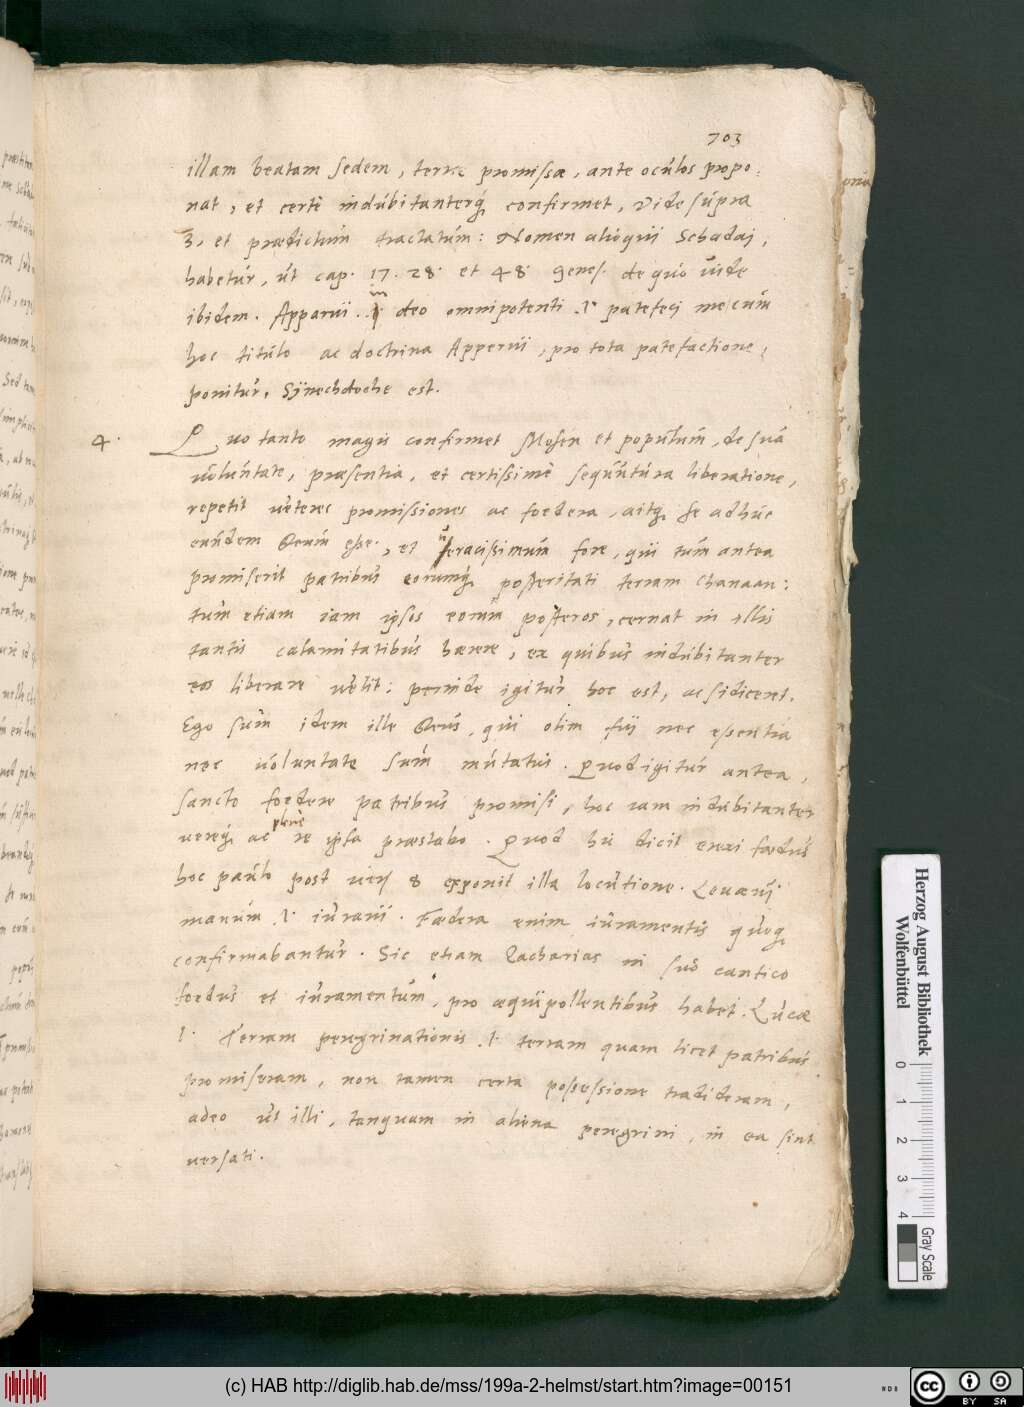 703
illam beatam sedem, terrae promissae, ante oculos propo:
nat, et certè indubitanterq́ confirmet, Vide supra
3, et praedictum tractatum: Nomen alioqui Schadaj,
habetur, ut cap. 17. 28. et 48 genes. de quo vide
ibidem. Apparui. in deo omnipotenti .1. patefeci me cum
hoc titulo ac doctrina Apperui, pro tota patefactione,
ponitur, Synechdoche est.
4. Quo tanto magis confirmet Mosen et populum, de sua
voluntate, praesentia, et certissimè sequutura liberatione,
repetit veteres promissiones ac foedera, aitq́ se adhuc
eundem Deum esse, et veracissimum fore, qui tum antea
promiserit patribus eorumq́ posteritati terram Chanaan:
tum etiam iam ipsos eorum posteros, cernat in illis
tantis calamitatibus haerere, ex quibus indubitanter
eos liberare velit: perinde igitur hoc est, ac si diceret.
Ego sum idem ille Deus, qui olim fui nec essentia
nec voluntate sum mutatus. Quod igitur antea,
sancto foedere patribus promisi, hoc iam indubitanter
vereq́ ac plenè re ipsa praestabo. Quod hic dicit erexi foedus
hoc paulo post vers 8 exponit illa locutione. Levavi
manum .1. iuravi. Foedera enim iuramentis quoq́
confirmabantur. Sic etiam Zacharias in suo cantico
foedus et iuramentum, pro aequipollentibus habet. Lucae
1. Terram peregrinationis .1. terram quam licet patribus
promiseram, non tamen certa possessione tradideram,
adeo ut illi, tanquam in aliena peregrini, in ea sint
versati.
Herzog August Bibliothek
Wolfenbüttel
0 1 2 3 4
Gray Scale
(c) HAB http://diglib.hab.de/mss/199a-2-helmst/start.htm?image=00151
NDB
cc
BY SA